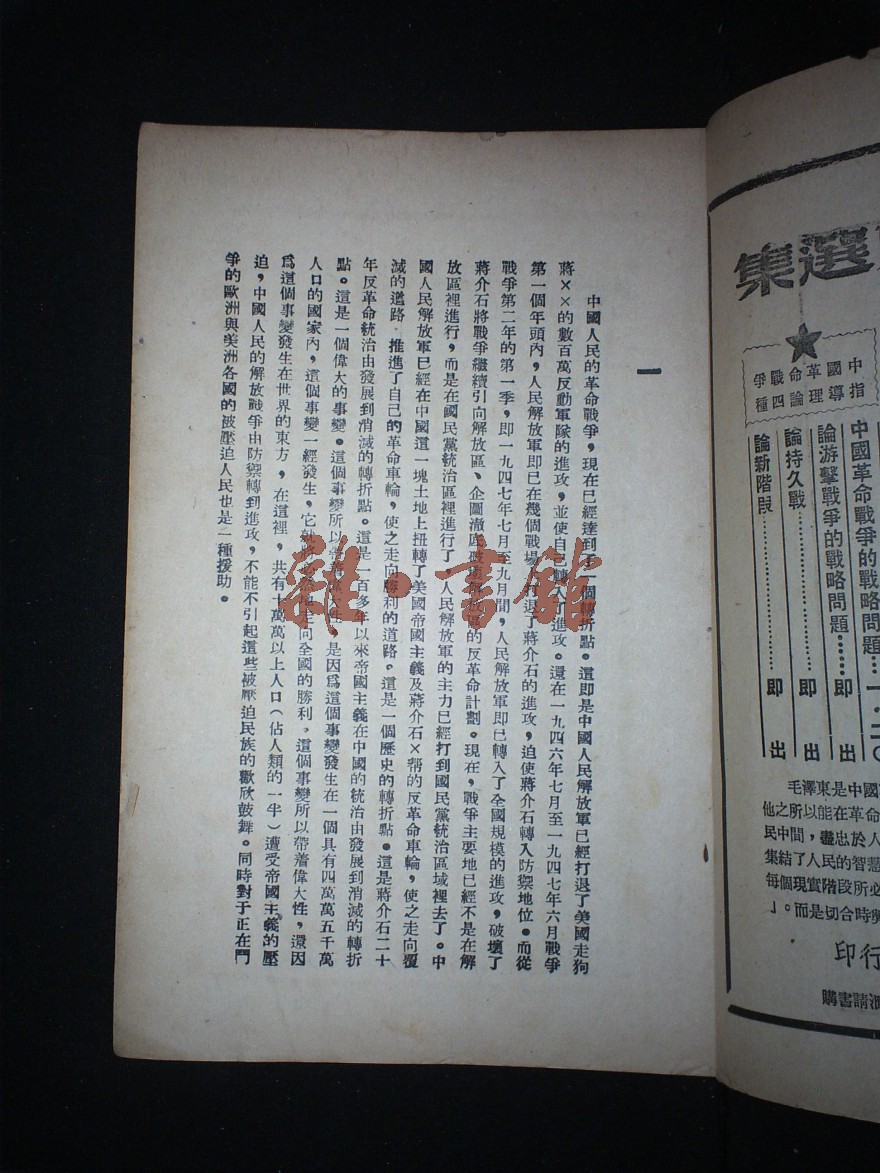 集
選
爭戰命革國中
種四論理導指
中國革命戰爭的戰略問題……一.二〇
論游擊戰爭的戰略問題……即出
論持久戰……即出
論新階段……即出
毛澤東是中國
他之所以能在革命
民中間，盡忠於人
集結了人民的智慧
每個現實階段所必
」。而是切合時
印行
購書請
一
中國人民的革命戰爭，現在已經達到了一個轉折點。這即是中國人民解放軍已經打退了美國走狗
蔣××的數百萬反動軍隊的進攻，並使自己轉入了進攻。還在一九四六年七月至一九四七年六月戰爭
第一個年頭內，人民解放軍即已在幾個戰場上打退了蔣介石的進攻，迫使蔣介石轉入防禦地位。而從
戰爭第二年的第一季，即一九四七年七月至九月間，人民解放軍即已轉入了全國規模的進攻，破壞了
蔣介石將戰爭繼續引向解放區、企圖澈底破壞解放區的反革命計劃。現在，戰爭主要地已經不是在解
放區裡進行，而是在國民黨統治區裡進行了，人民解放軍的主力已經打到國民黨統治區域裡去了。中
國人民解放軍已經在中國這一塊土地上扭轉了美國帝國主義及蔣介石×幫的反革命車輪，使之走向覆
滅的道路，推進了自己的革命車輪，使之走向勝利的道路。這是一個歷史的轉折點。這是蔣介石二十
年反革命統治由發展到消滅的轉折點。這是一百多年以來帝國主義在中國的統治由發展到消滅的轉折
點。這是一個偉大的事變。這個事變所以帶着偉大性，是因爲這個事變發生在一個具有四萬萬五千萬
人口的國家內，這個事變一經發生，它就將走向全國的勝利。這個事變所以帶着偉大性，還因
爲這個事變發生在世界的東方，在這裡，共有十萬萬以上人口（佔人類的一半）遭受帝國主義的壓
迫，中國人民的解放戰爭由防禦轉到進攻，不能不引起這些被壓迫民族的歡欣鼓舞。同時對于正在鬥
爭的歐洲與美洲各國的被壓迫人民也是一種援助。
雜·書館